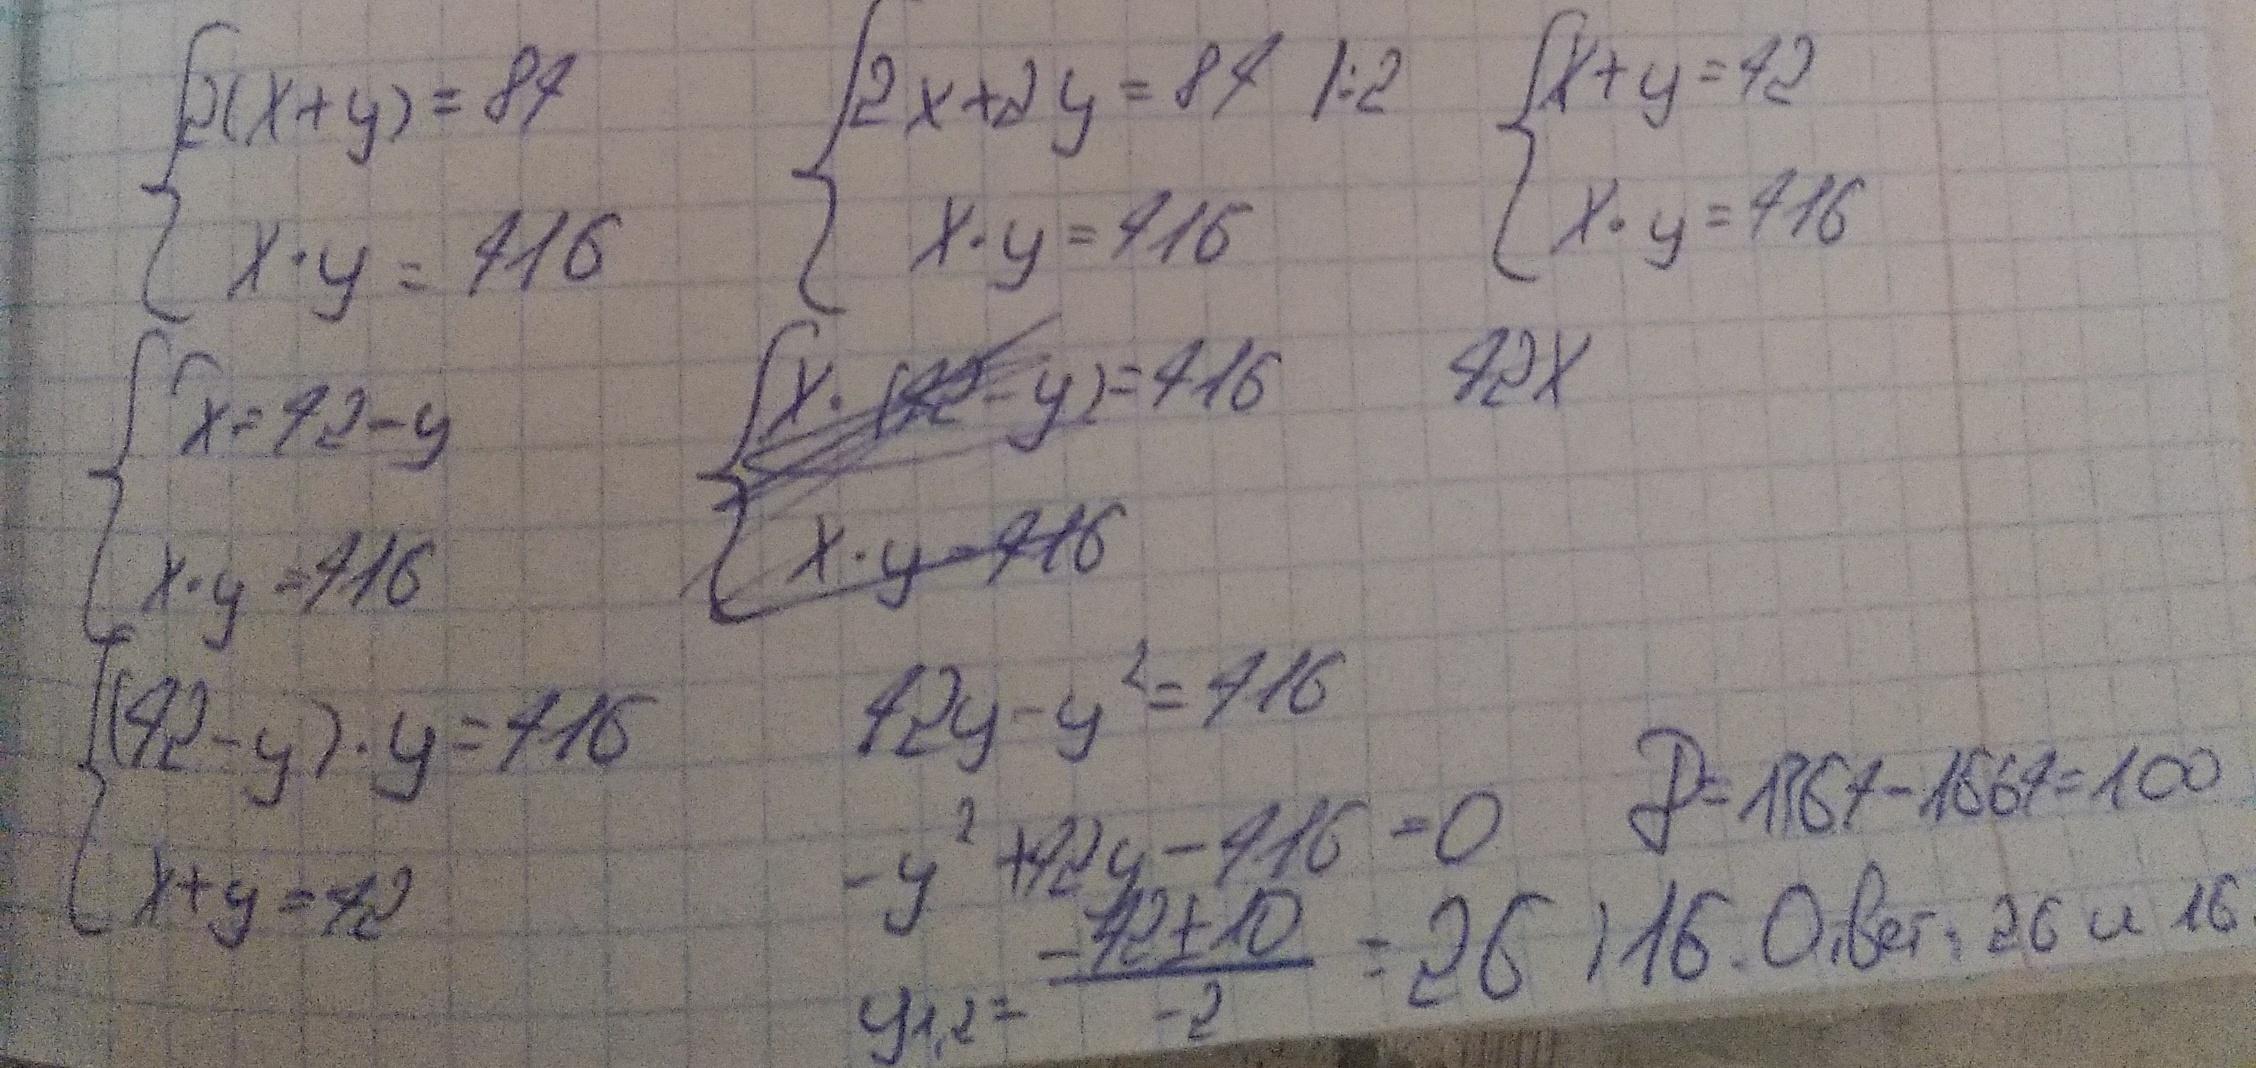 2(x+y)=84
x·y=416
2x+2y=84 |:2
x·y=416
x+y=42
x·y=416
x=42-y
x·y=416
x·(42-y)=416
x·y=416
42x
(42-y)·y=416
x+y=42
42y-y²=416
-y²+42y-416=0
D=1764-1664=100
y1,2= -42±10 / -2 = 26 ; 16. Ответ: 26 и 16.